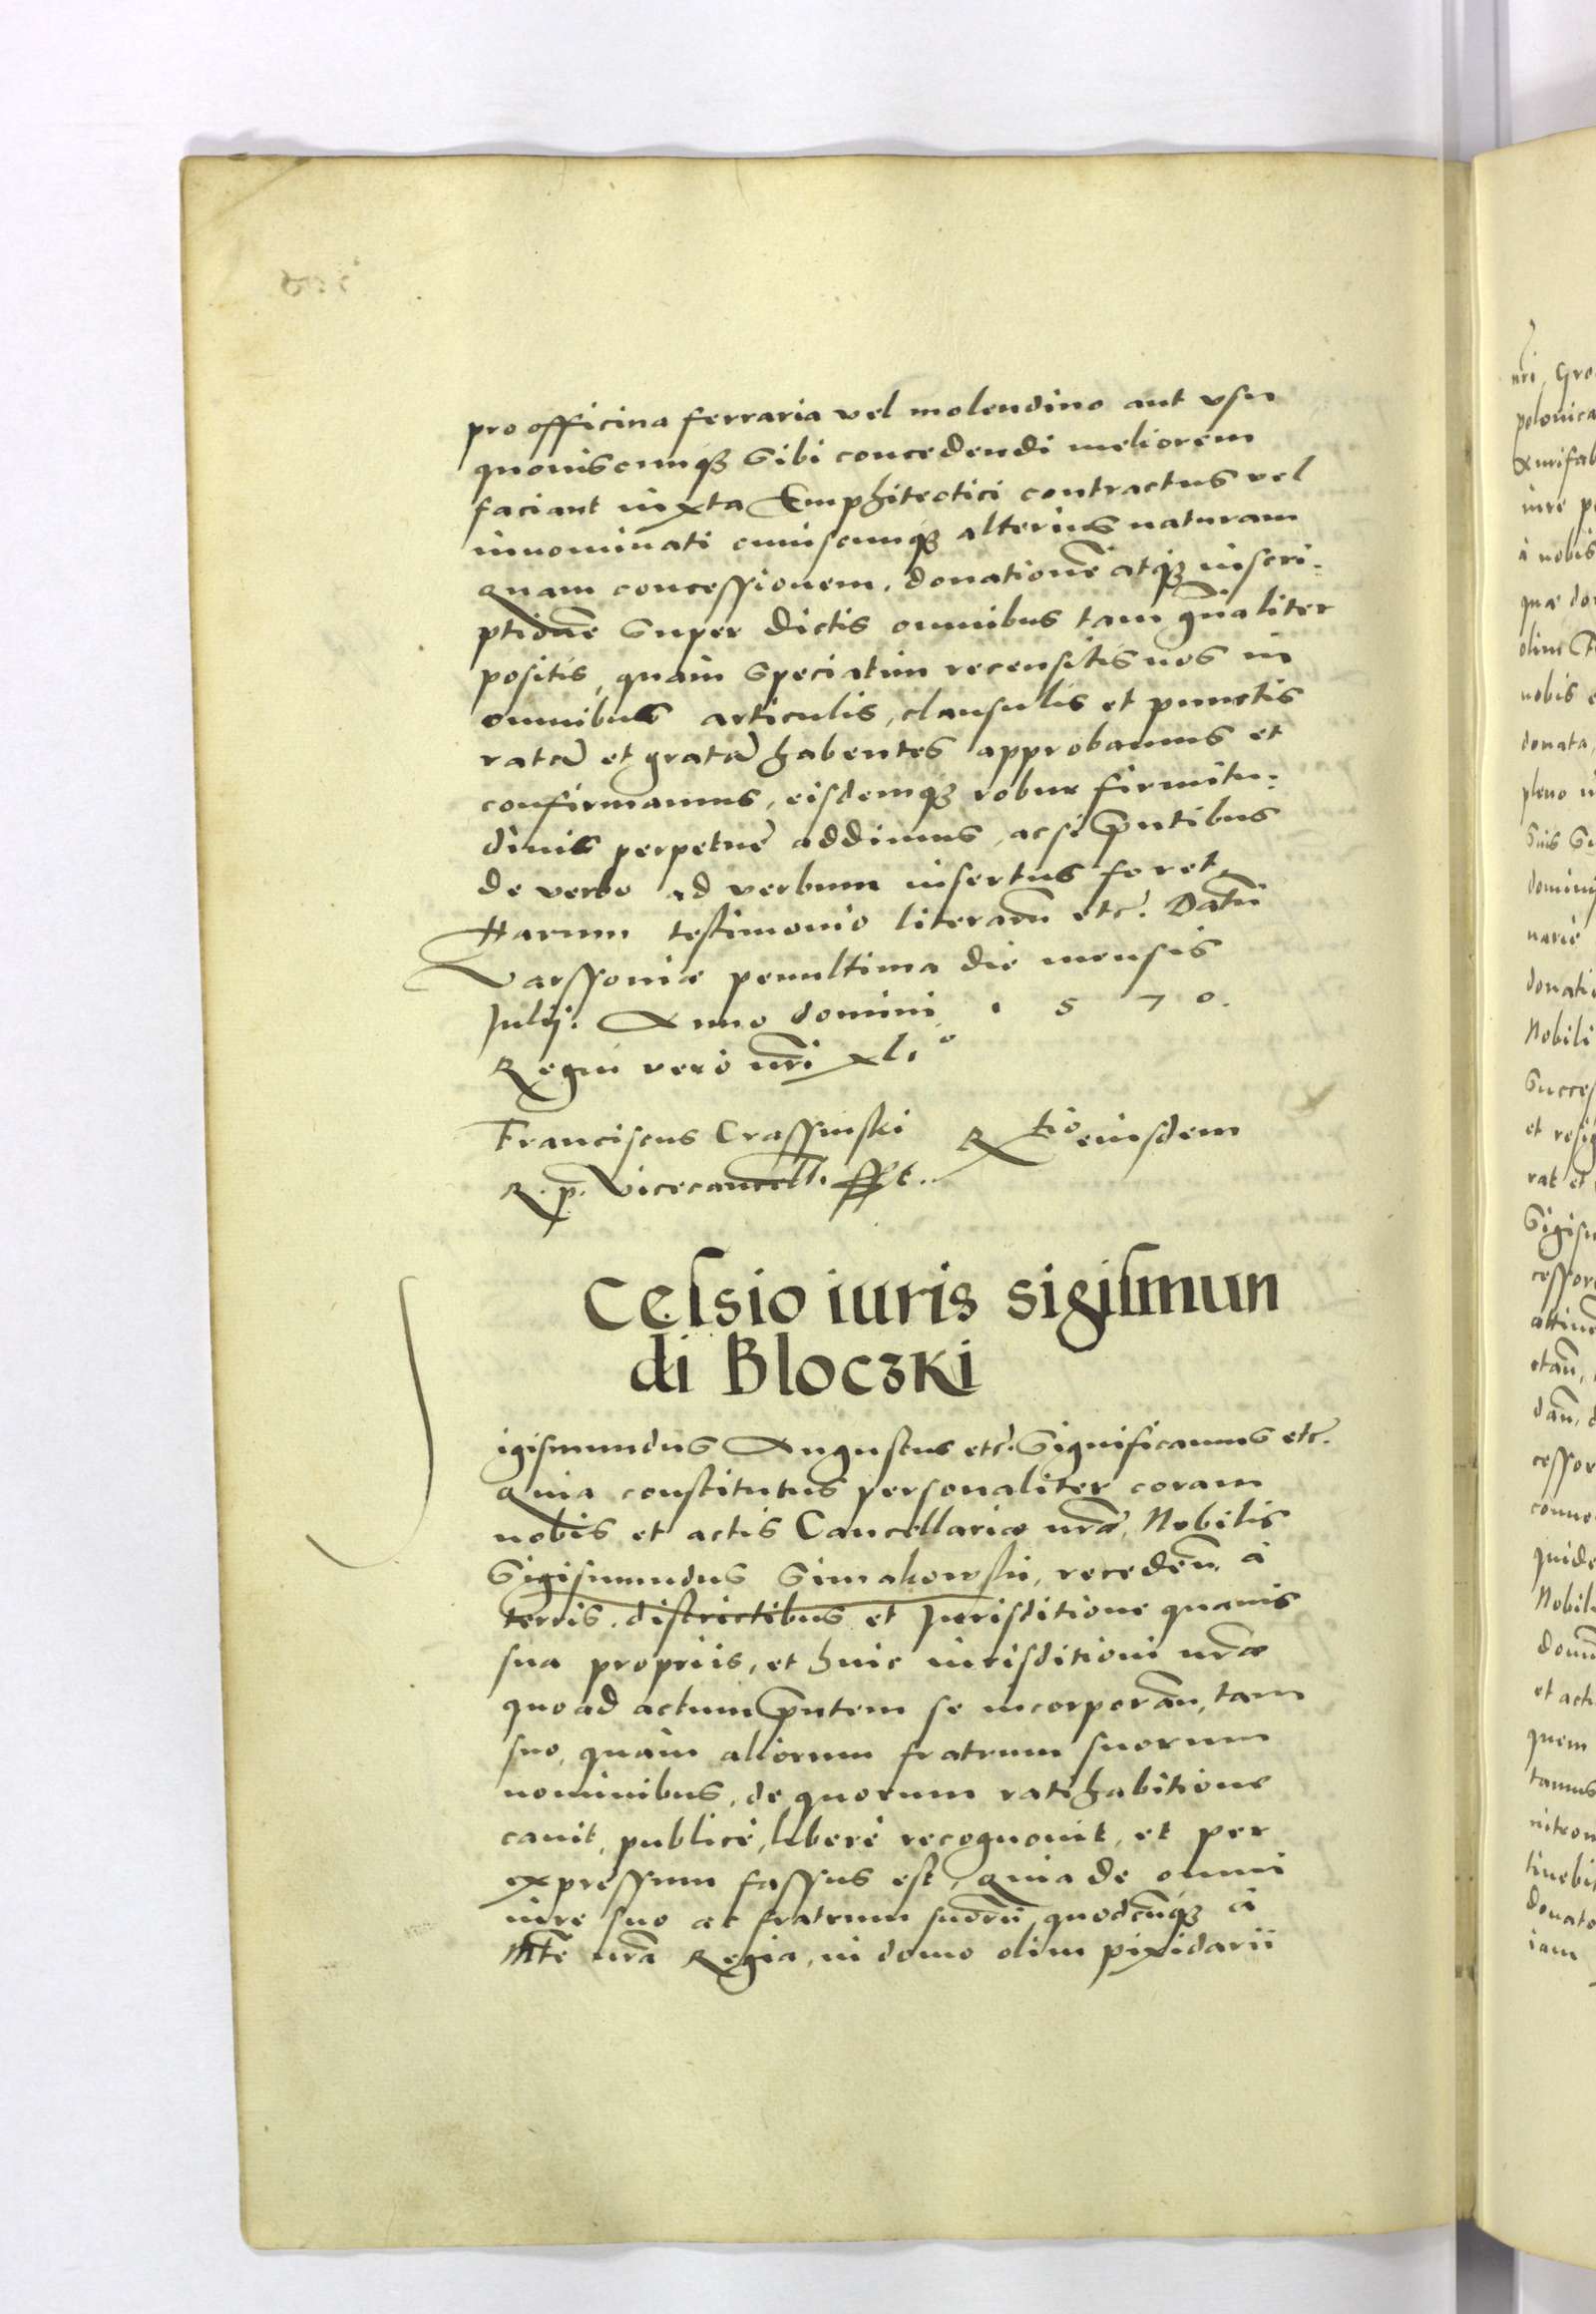 pro officina ferraria vel molendino aut vsu
quouiscunqȝ sibi concedendi meliorem
faciant iuxta Emphiteotici contractus vel
innominati cuiuscunqȝ alterius naturam
Quam concessionem, donationē atqȝ inscri-
ptionē super dictis omnibus tam gnāliter
positis, quàm speciatim recensitis nos in
omnibus articulis, clausulis et punctis
ratā et gratā habentes approbamus et
confirmamus, eisdemqȝ robur firmitu-
dinis perpetuę addimus, ac si pntibus
de verbo ad verbum insertus foret.
Harum testimonio literarū etc. Datū
Varssoniæ penultima die mensis
Julij. Anno domini 1 5 7 0.
Regni verò nri xli°
Franciscus Crassinski
Rtio eiusdem
R. p. Vicecancell. sst.
Celsio iuris sigilmun
di Bloczki
igismundus Augustus etc. Significamus etc.
Quia constitutus personaliter coram
nobis et actis Cancellariæ nræ, Nobilis
Sigismundus Simakowski, recedēn. à
terris, districtibus et Jurisditione quauis
sua propriis, et huic iurisditioni nræ
quo ad actum pntem se incorporān, tam
suo, quàm aliorum fratrum suorum
nominibus, de quorum ratihabitione
cauit, publicè, liberè recognouit, et per
expressum fassus est, Quia de omni
iure suo ac fratrum suorū, quodcūqȝ à
Mte nrā Regia, in domo olim pixidarii